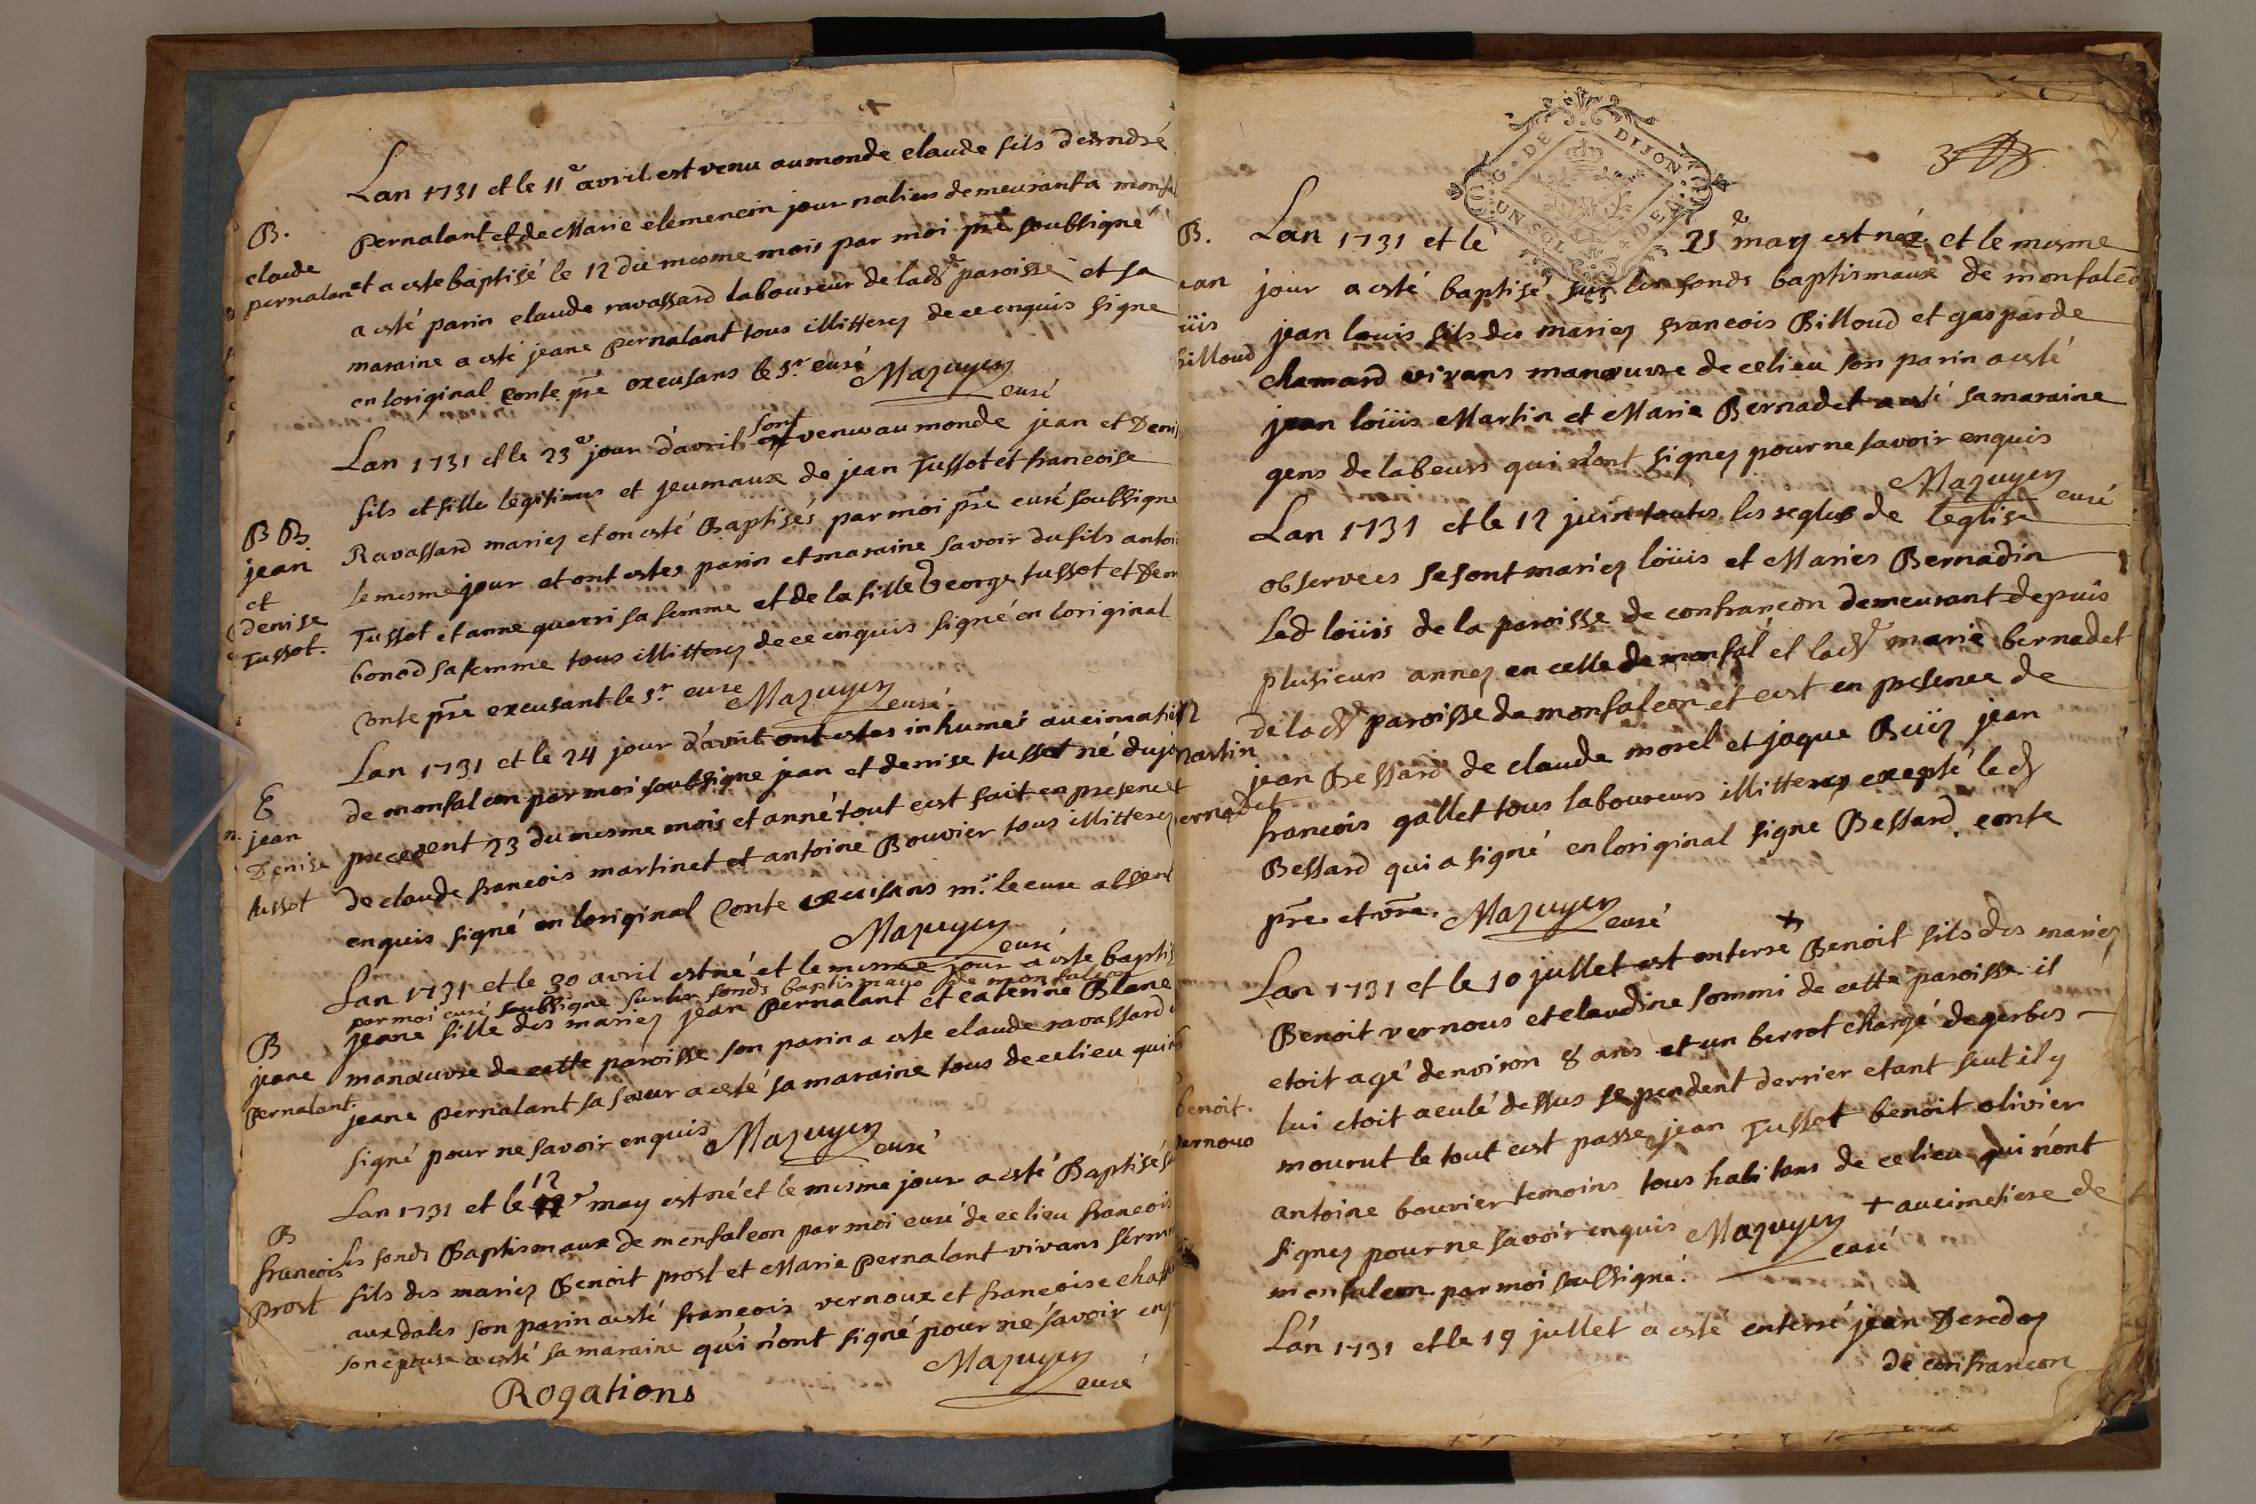 Lan 1731 et le 11e avril est venu au monde claude fils dandré
B.
claude
pernalant
pernalant et de Marie clemencin journaliers demeurant a monfa
et a este baptisé le 12 du mesme mois par moi pre soubsigne
a esté parin claude ravassard laboureur de ladte paroisse et sa
maraine a esté jeane pernalant tous illitterez de ce enquis signe
en loriginal Conte pre excusans le sr curé Mazuyer
curé
Lan 1731 et le 23e jour davril sont venu au monde jean et Denis
B B.
jean
et
denise
Tussot.
fils et fille legitimes et jeumaux de jean Tussot et francoise
Ravassard mariez et on esté Baptisés par moi pre curé soubsigne
le mesme jour et ont estes parin et maraine savoir du fils antoi
Tussot et anne guerri sa femme et de la fille George tussot et Den
bonod sa femme tous illitterez de ce enquis signé en loriginal
Conte pre excusant le sr cure Mazuyer
curé.
Lan 1731 et le 24 jour davril ont estes inhumes au cimati
E
jean
Denise
tussot
de monfalcon par moi soubsigne jean et denise tussot né du jo
precedent 23 du mesme mois et anné tout cest fait en presence
de claude francois martinet et antoine Bouvier tous illitterez
enquis signé en loriginal Conte excusans mr le cure absent
Mazuyer
curé
Lan 1731 et le 30 avril est né et le mesme jour a este baptis
par moi curé soubsigne sur les fonds baptismaux de monfalcon
B
jeane
pernalant.
jeane fille des mariez jean pernalant et caterine Blanc
manœuvre de cette paroisse son parin a este claude ravassard
jeane pernalant sa sœur a esté sa maraine tous de ce lieu qui
signé pour ne savoir enquis Mazuyer
curé
Lan 1731 et le 12e may est né et le mesme jour a esté Baptisé s
B
francois
prost
les fonds Baptismaux de monfalcon par moi curé de ce lieu francois
fils des mariez Benoit prost et Marie pernalant vivans
aux dales son parin a esté francois vernoux et francoise
son epouse a esté sa maraine qui n'ont signé pour ne savoir enq
Mazuyer
curé
Rogations
G. DE DIJON
UN SOL 4 DE
Lan 1731 et le 25e may est néz et le mesme
B.
ean
oüis
billoud
jour a esté baptisé sur les fonds baptismaux de monfalcō
jean louis fils des mariez francois Billoud et gasparde
chamard vivans manœuvre de ce lieu son parin a esté
jean loüis Martin et Marie Bernadet a esté sa maraine
gens de labeurs qui n'ont signez pour ne savoir enquis
Mazuyer
curé
Lan 1731 et le 12 juin toutes les regles de leglise
observees se sont mariez loüis et Maries Bernadin
Led loüis de la paroisse de confrancon demeurant depuis
plusieurs annez en celle de monfal et ladte marie bernadet
M
martin
bernadet
de la dte paroisse de monfalcon et cest en presence de
jean Bessard de claude morel et jaque Buiiz jean
francois gallet tous laboureurs illitterez exepté le dt
Bessard qui a signé en loriginal signe Bessard. conte
pre et vre. Mazuyer
curé
Lan 1731 et le 10 jullet est enterré + Benoit fils des mariez
Benoit vernous et claudine sommi de cette paroisse il
etoit agé denviron 8 ans et un berrot chargé de gerbes
benoit.
vernous
lui etoit aculé dessus se pendent derrier etant seul il y
mourut le tout cest passe jean Tussot benoit olivier
antoine bouvier temoins tous habitans de ce lieu qui n'ont
signez pour ne savoir enquis Mazuyer
curé
+ au cimetiere de
monfalcon par moi soussigné.
Lan 1731 et le 19 jullet a este enterré jean Deredez
de confrancon